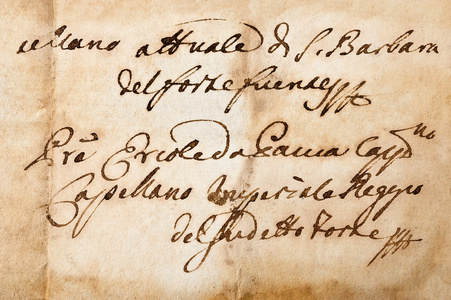 ellano attuale di S. Barbara
del forte fuenes
Pre Ercole da Pauia Capp.no
Capellano Imperiale Reggio
del sudetto forte